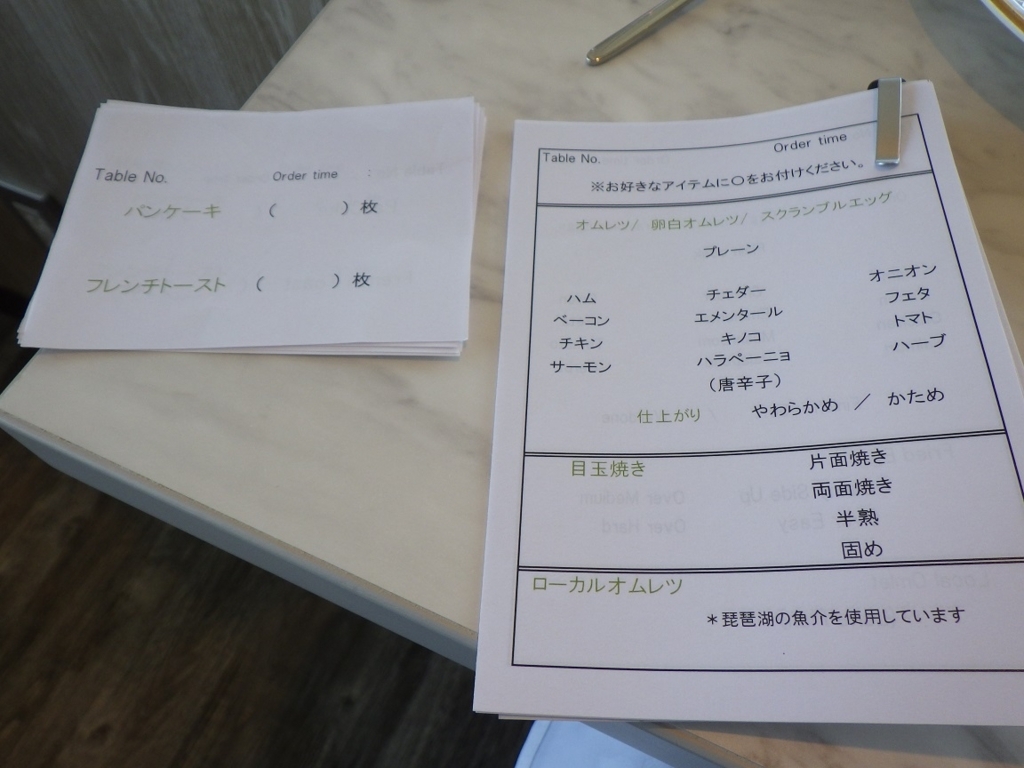 Table No. Order time :
パンケーキ ( ) 枚
フレンチトースト ( ) 枚
Table No. Order time
※お好きなアイテムに○をお付けください。
オムレツ/ 卵白オムレツ/ スクランブルエッグ
プレーン
ハム チェダー オニオン
ベーコン エメンタール フェタ
チキン キノコ トマト
サーモン ハラペーニョ ハーブ
(唐辛子)
仕上がり やわらかめ / かため
目玉焼き 片面焼き
両面焼き
半熟
固め
ローカルオムレツ
*琵琶湖の魚介を使用しています